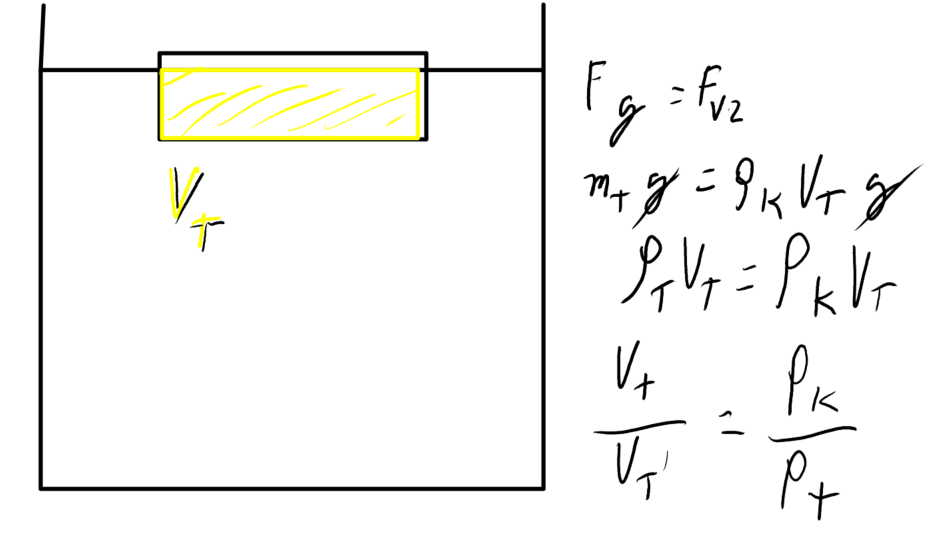 V_T
F_g = F_vz
m_T g = ρ_K V_T g
ρ_T V_T = ρ_K V_T
V_T / V_T' = ρ_K / ρ_T